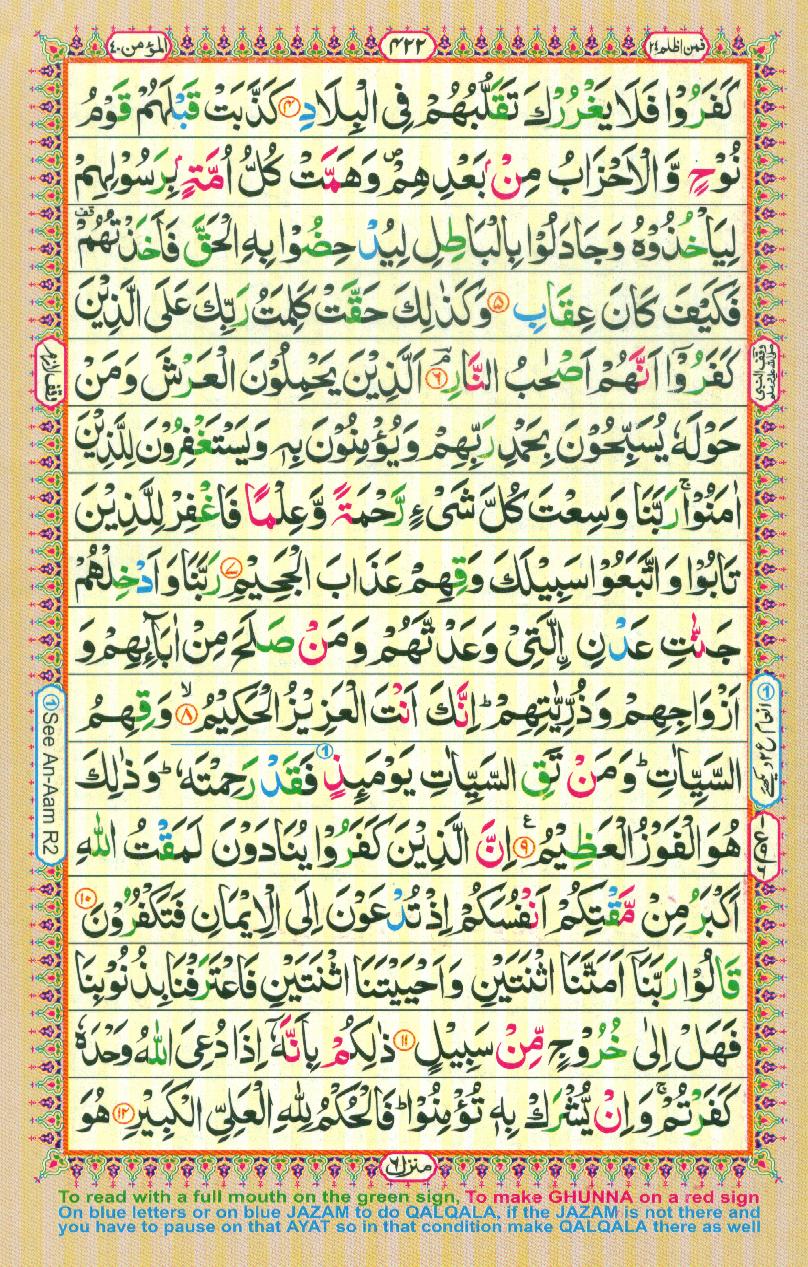 المؤمن ٤٠
٤٢٢
فمن اظلم ٢٤
كَفَرُوْا فَلَا يَغْرُرْكَ تَقَلُّبُهُمْ فِى الْبِلَادِ ④ كَذَّبَتْ قَبْلَهُمْ قَوْمُ
نُوْحٍ وَّ الْاَحْزَابُ مِنْۢ بَعْدِهِمْ ۪ وَهَمَّتْ كُلُّ اُمَّةٍۭ بِرَسُوْلِهِمْ
لِيَاْخُذُوْهُ وَجَادَلُوْا بِالْبَاطِلِ لِيُدْحِضُوْا بِهِ الْحَقَّ فَاَخَذْتُهُمْ قف
فَكَيْفَ كَانَ عِقَابِ ⑤ وَكَذٰلِكَ حَقَّتْ كَلِمَتُ رَبِّكَ عَلَى الَّذِيْنَ
كَفَرُوْۤا اَنَّهُمْ اَصْحٰبُ النَّارِ ۘؔ ⑥ اَلَّذِيْنَ يَحْمِلُوْنَ الْعَرْشَ وَمَنْ
حَوْلَهٗ يُسَبِّحُوْنَ بِحَمْدِ رَبِّهِمْ وَيُؤْمِنُوْنَ بِهٖ وَيَسْتَغْفِرُوْنَ لِلَّذِيْنَ
اٰمَنُوْا ۚ رَبَّنَا وَسِعْتَ كُلَّ شَىْءٍ رَّحْمَةً وَّعِلْمًا فَاغْفِرْ لِلَّذِيْنَ
تَابُوْا وَاتَّبَعُوْا سَبِيْلَكَ وَقِهِمْ عَذَابَ الْجَحِيْمِ ⑦ رَبَّنَا وَاَدْخِلْهُمْ
جَنّٰتِ عَدْنِ اۨلَّتِىْ وَعَدْتَّهُمْ وَمَنْ صَلَحَ مِنْ اٰبَآئِهِمْ وَ
اَزْوَاجِهِمْ وَذُرِّيّٰتِهِمْ ؕ اِنَّكَ اَنْتَ الْعَزِيْزُ الْحَكِيْمُ ۙ ⑧ وَقِهِمُ
السَّيِّاٰتِ ؕ وَمَنْ تَقِ السَّيِّاٰتِ يَوْمَئِذٍ ① فَقَدْ رَحِمْتَهٗ ؕ وَذٰلِكَ
هُوَ الْفَوْزُ الْعَظِيْمُ ⑨ ع اِنَّ الَّذِيْنَ كَفَرُوْا يُنَادَوْنَ لَمَقْتُ اللّٰهِ
اَكْبَرُ مِنْ مَّقْتِكُمْ اَنْفُسَكُمْ اِذْ تُدْعَوْنَ اِلَى الْاِيْمَانِ فَتَكْفُرُوْنَ ⑩
قَالُوْا رَبَّنَاۤ اَمَتَّنَا اثْنَتَيْنِ وَاَحْيَيْتَنَا اثْنَتَيْنِ فَاعْتَرَفْنَا بِذُنُوْبِنَا
فَهَلْ اِلٰى خُرُوْجٍ مِّنْ سَبِيْلٍ ⑪ ذٰلِكُمْ بِاَنَّهٗۤ اِذَا دُعِىَ اللّٰهُ وَحْدَهٗ
كَفَرْتُمْ ۚ وَاِنْ يُّشْرَكْ بِهٖ تُؤْمِنُوْا ؕ فَالْحُكْمُ لِلّٰهِ الْعَلِىِّ الْكَبِيْرِ ⑫ هُوَ
وقف لازم
① See An-Aam R2
منزل ٦
To read with a full mouth on the green sign, To make GHUNNA on a red sign
On blue letters or on blue JAZAM to do QALQALA, if the JAZAM is not there and
you have to pause on that AYAT so in that condition make QALQALA there as well